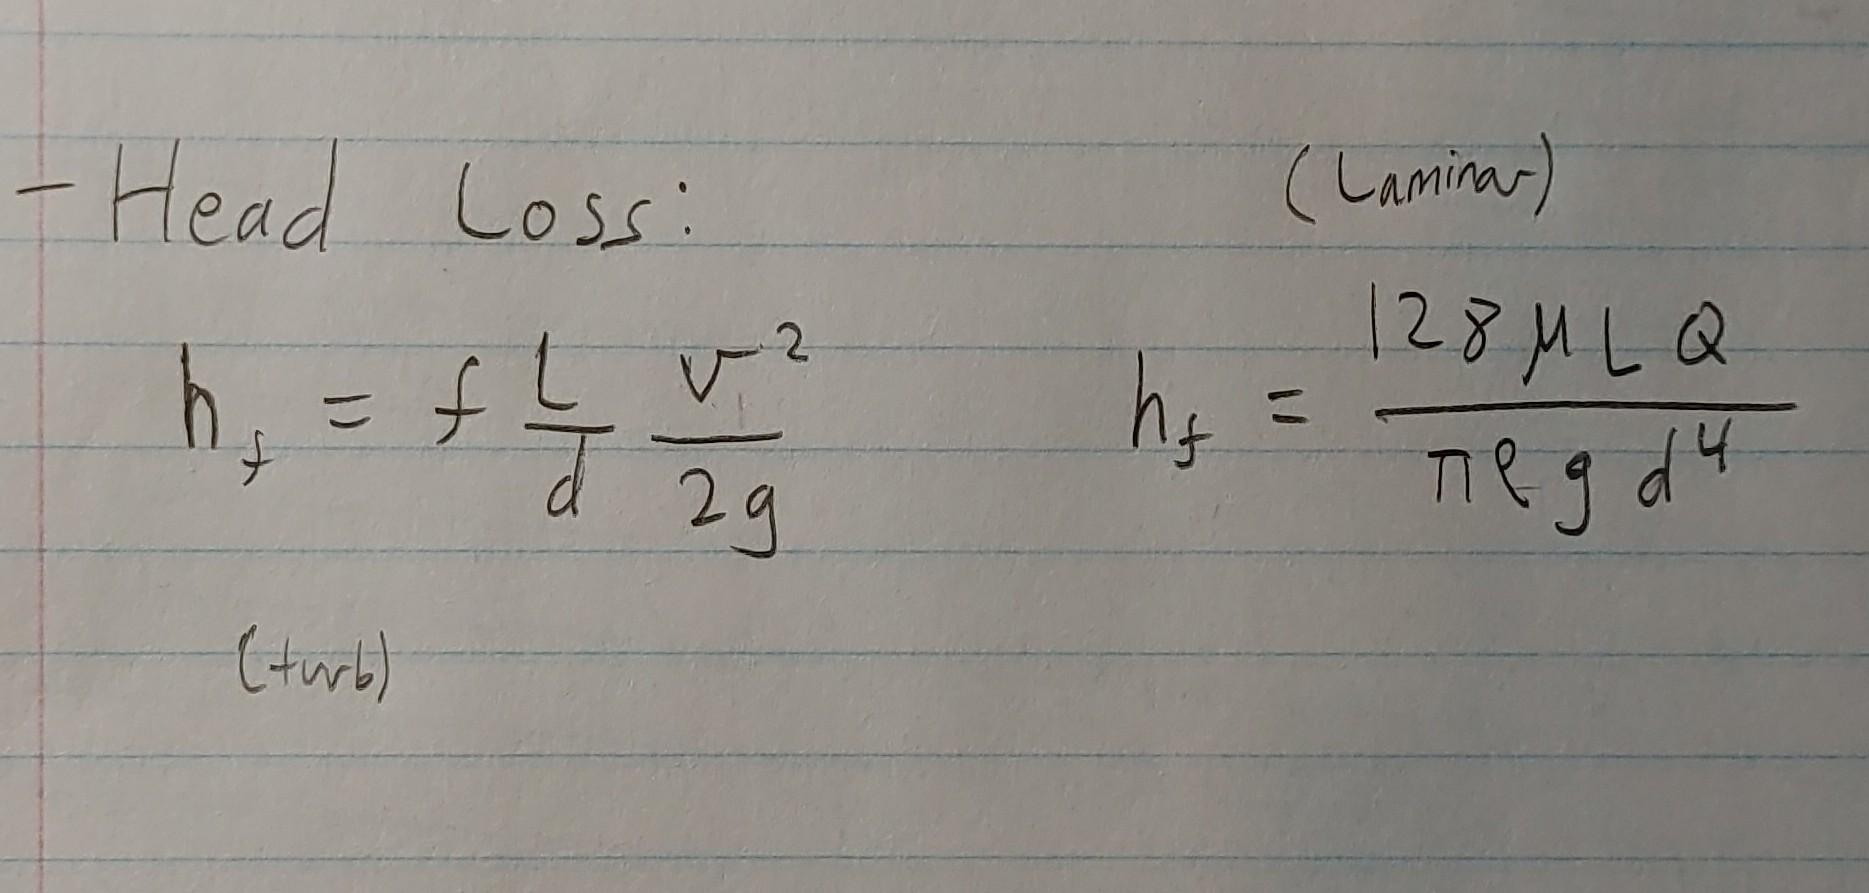 - Head Loss: (Laminar)
h_f = f L/d v²/2g h_f = 128 μ L Q / π ρ g d⁴
(turb)